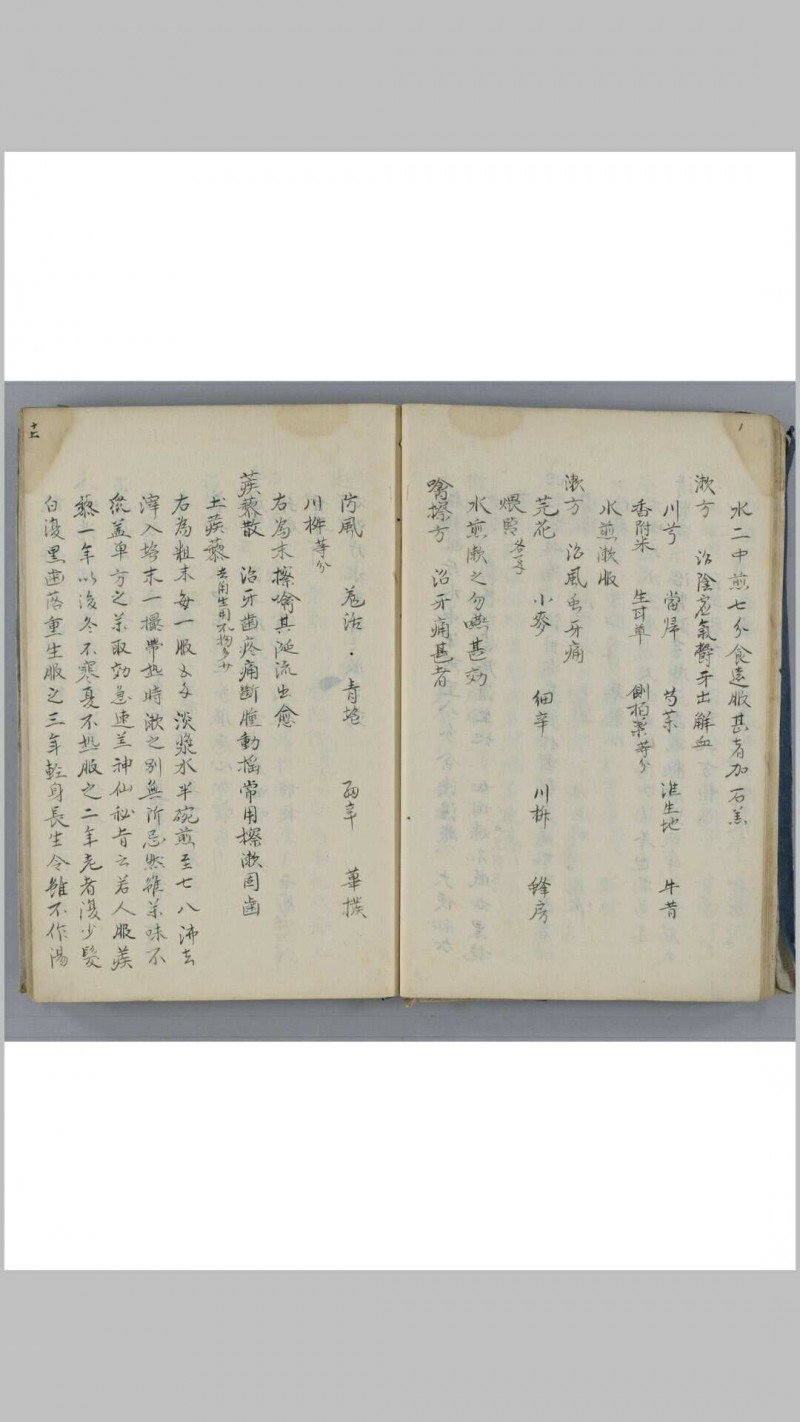 水二中煎七分食遠服甚者加石羔
漱方 治陰虛氣鬱牙出觧血
川芎 當歸 芍藥 淮生地 牛昔
香附米 生甘草 側栢葉等分
水煎漱服
漱方 治風虫牙痛
芫花 小麥 細辛 川椒 蜂房
各等
水煎漱之勿嚥甚効
噙擦方 治牙痛甚者
十七
防風 羌活 青塩 細辛 蓽撥
川椒等分
右為末擦噙其涎流出愈
蒺藜散 治牙齒疼痛齗腫動搖常用擦漱固齒
土蒺藜 去角生用不拘多少
右為粗末每一服五錢淡漿水半碗煎至七八沸去
滓入塩末一撮帶熱時漱之別無所忌然雖藥味不
眾盖單方之藥取効急速兰神仙秘旨云若人服蒺
藜一年以後冬不寒夏不热服之二年老者復少髮
白復黑齒落重生服之三年輕身長生令雖不作湯